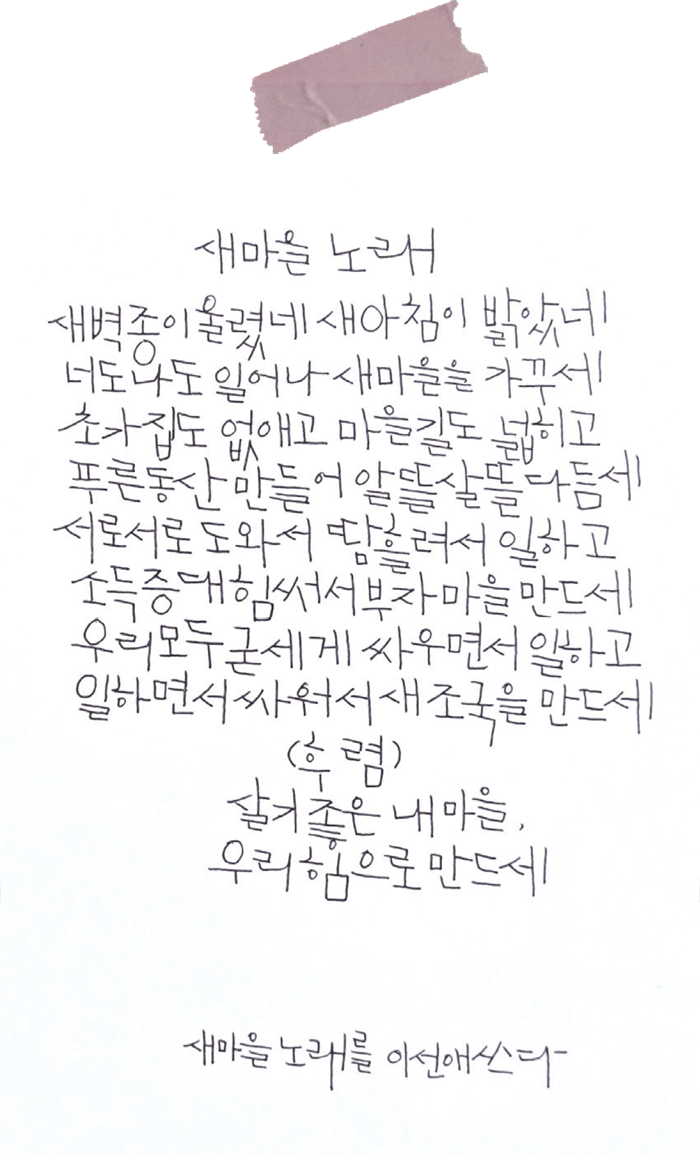 새마을 노래
새벽종이 울렸네 새아침이 밝았네
너도 나도 일어나 새마을을 가꾸세
초가집도 없애고 마을길도 넓히고
푸른동산 만들어 알뜰살뜰 다듬세
서로서로 도와서 땀흘려서 일하고
소득증대 힘써서 부자마을 만드세
우리모두 굳세게 싸우면서 일하고
일하면서 싸워서 새조국을 만드세
(후렴)
살기좋은 내마을,
우리힘으로 만드세
새마을 노래를 이선애쓰다